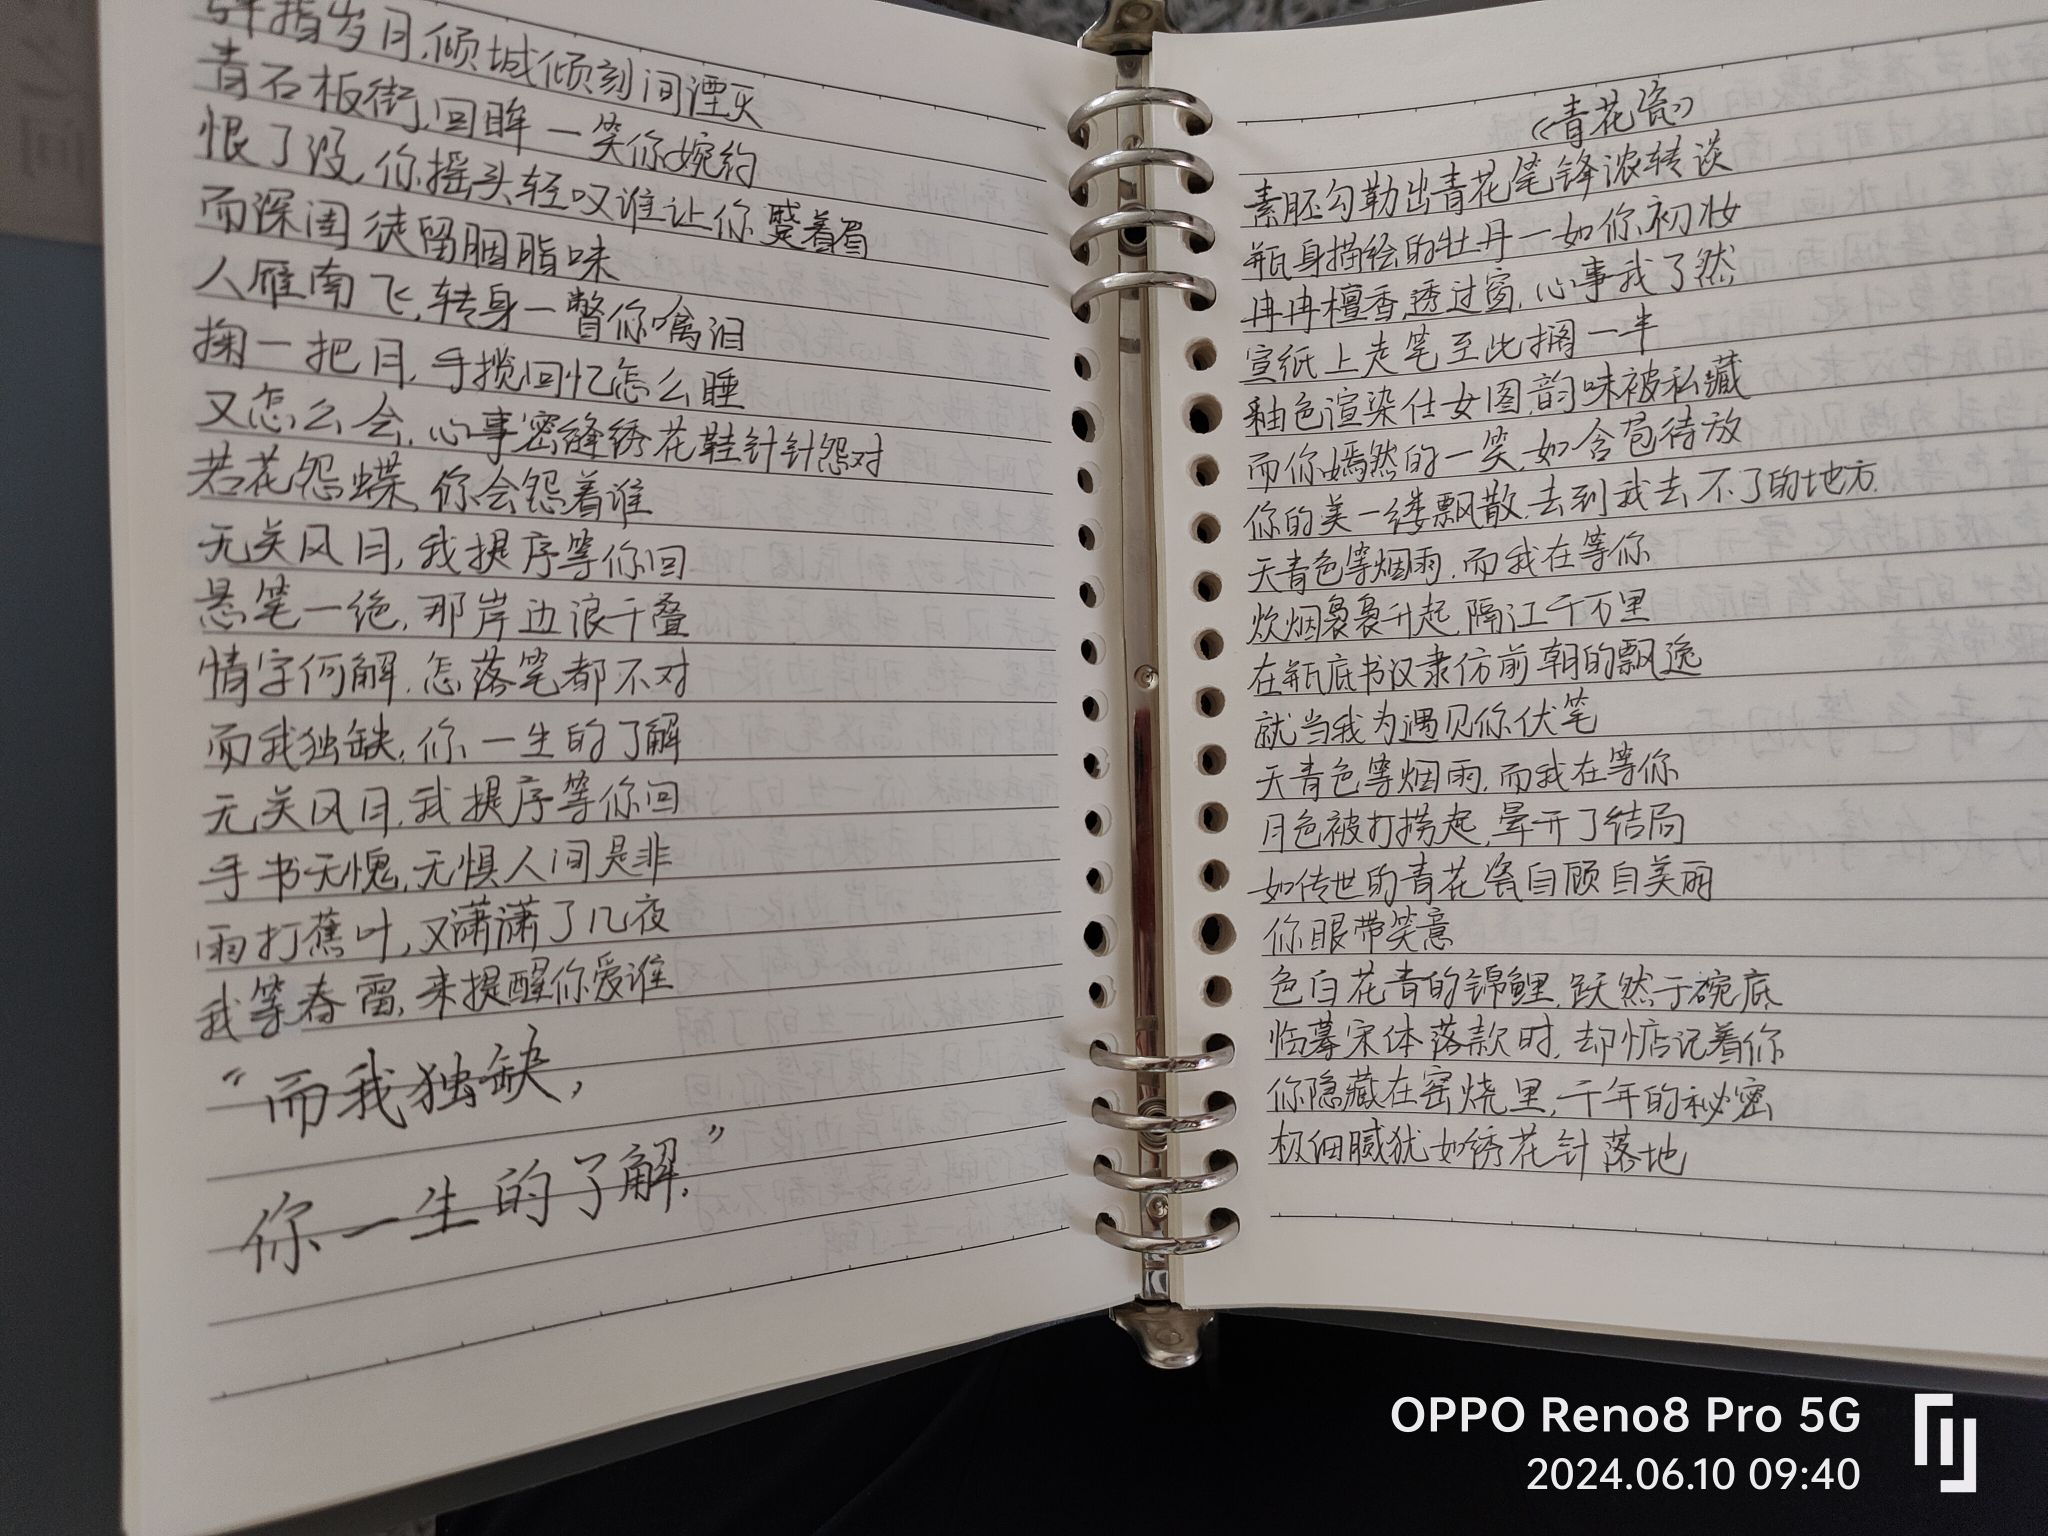 弹指岁月,倾城倾刻间湮灭
青石板街,回眸一笑你婉约
恨了没,你摇头轻叹谁让你蹙着眉
而深闺徒留胭脂味
人雁南飞,转身一瞥你噙泪
掬一把月,手揽回忆怎么睡
又怎么会,心事密缝绣花鞋针针怨对
若花怨蝶,你会怨着谁
无关风月,我提序等你回
悬笔一绝,那岸边浪千叠
情字何解,怎落笔都不对
而我独缺,你一生的了解
无关风月,我提序等你回
手书无愧,无惧人间是非
雨打蕉叶,又潇潇了几夜
我等春雷,来提醒你爱谁
“而我独缺,
你一生的了解.”
《青花瓷》
素胚勾勒出青花笔锋浓转淡
瓶身描绘的牡丹一如你初妆
冉冉檀香透过窗,心事我了然
宣纸上走笔至此搁一半
釉色渲染仕女图,韵味被私藏
而你嫣然的一笑,如含苞待放
你的美一缕飘散,去到我去不了的地方.
天青色等烟雨,而我在等你
炊烟袅袅升起,隔江千万里
在瓶底书汉隶仿前朝的飘逸
就当我为遇见你伏笔
天青色等烟雨,而我在等你
月色被打捞起,晕开了结局
如传世的青花瓷自顾自美丽
你眼带笑意
色白花青的锦鲤,跃然于碗底
临摹宋体落款时,却惦记着你
你隐藏在窑烧里,千年的秘密
极细腻犹如绣花针落地
OPPO Reno8 Pro 5G
2024.06.10 09:40